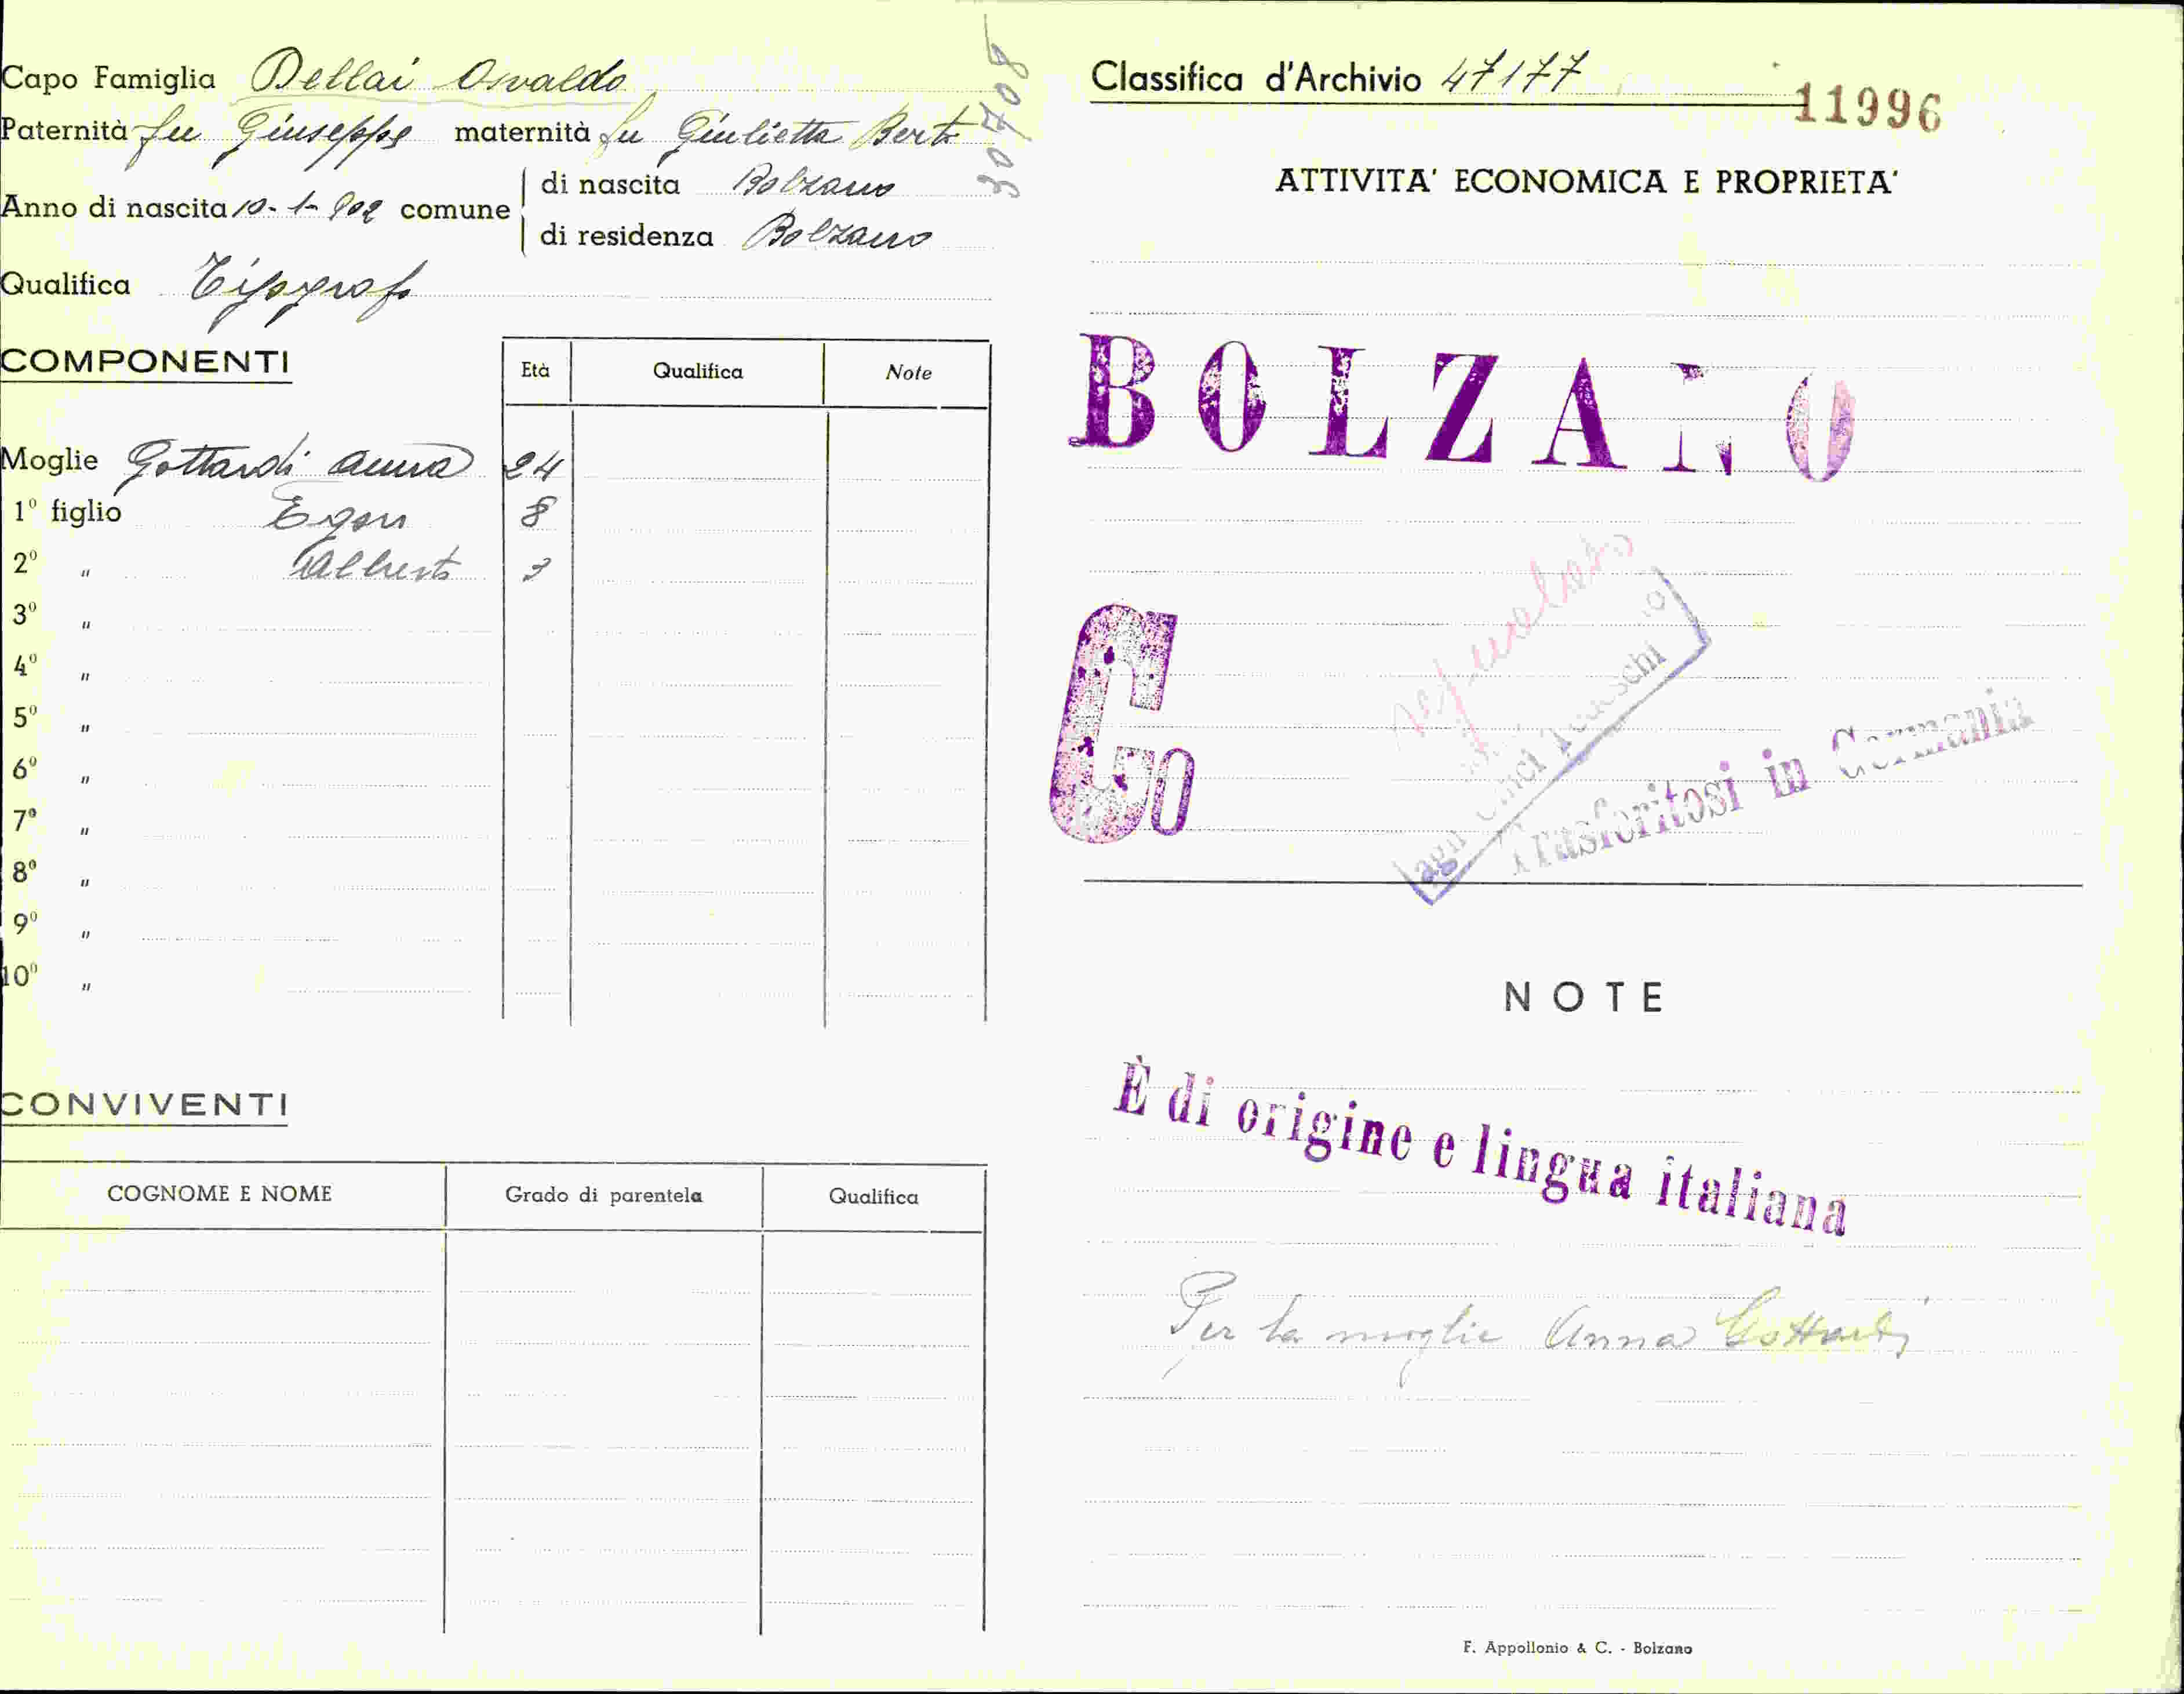 Capo Famiglia Dellai Osvaldo
Paternità fu Giuseppe maternità fu Giulietta Berto
Anno di nascita 10-1-902 comune
di nascita Bolzano
di residenza Bolzano
Qualifica Tipografo
30708
COMPONENTI
Età Qualifica Note
Moglie Gottardi Anna 24
1º figlio Egon 8
2º " Alberto 3
3º "
4º "
5º "
6º "
7º "
8º "
9º "
10º "
CONVIVENTI
COGNOME E NOME Grado di parentela Qualifica
Classifica d'Archivio 47177
11996
ATTIVITA' ECONOMICA E PROPRIETA'
BOLZANO
Co
agli
Trasferitosi in Germania
NOTE
È di origine e lingua italiana
Per la moglie Anna Gottardi
F. Appollonio & C. - Bolzano